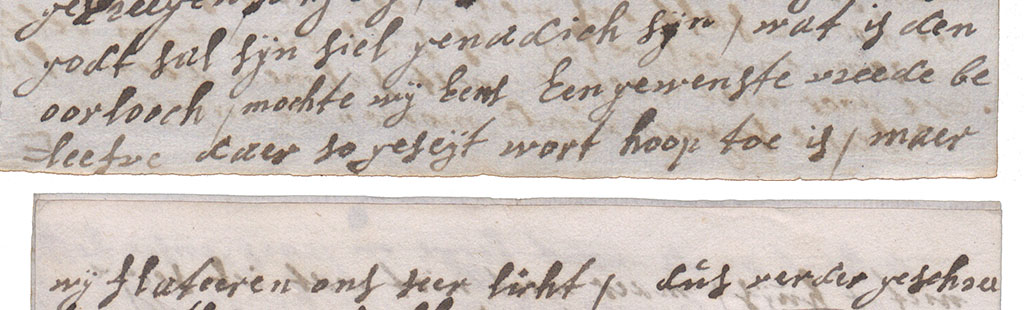 godt sal sijn siel genadich sijn / wat is den
oorlooch / mochte wij Eens Een gewenste vreede be
=leefve daer so geseijt wort hoop toe is / maer
wij flateeren ons seer licht / dus verder geschree